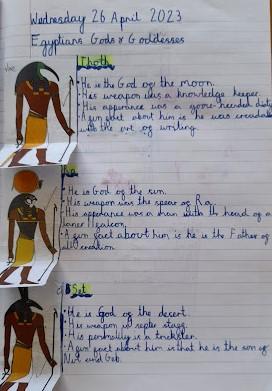 Wednesday 26 April 2023
Egyptians Gods & Goddesses
Thoth
• He is the God of the moon.
• His weapon was a knowledge keeper.
• His apperance was a headed diety
• A fun fact about him is he was
with the art of writing.
Ra
• He is God of the sun.
• His weapon was the spear of Ra.
• His apperance was a man with th head of a
• A fun fact about him is he is the Father of
all creation
Set
• He is God of the desert.
• His weapon is septer staff.
• His personality is a trickster.
• A fun fact about him is that he is the son of
Nut and Geb.